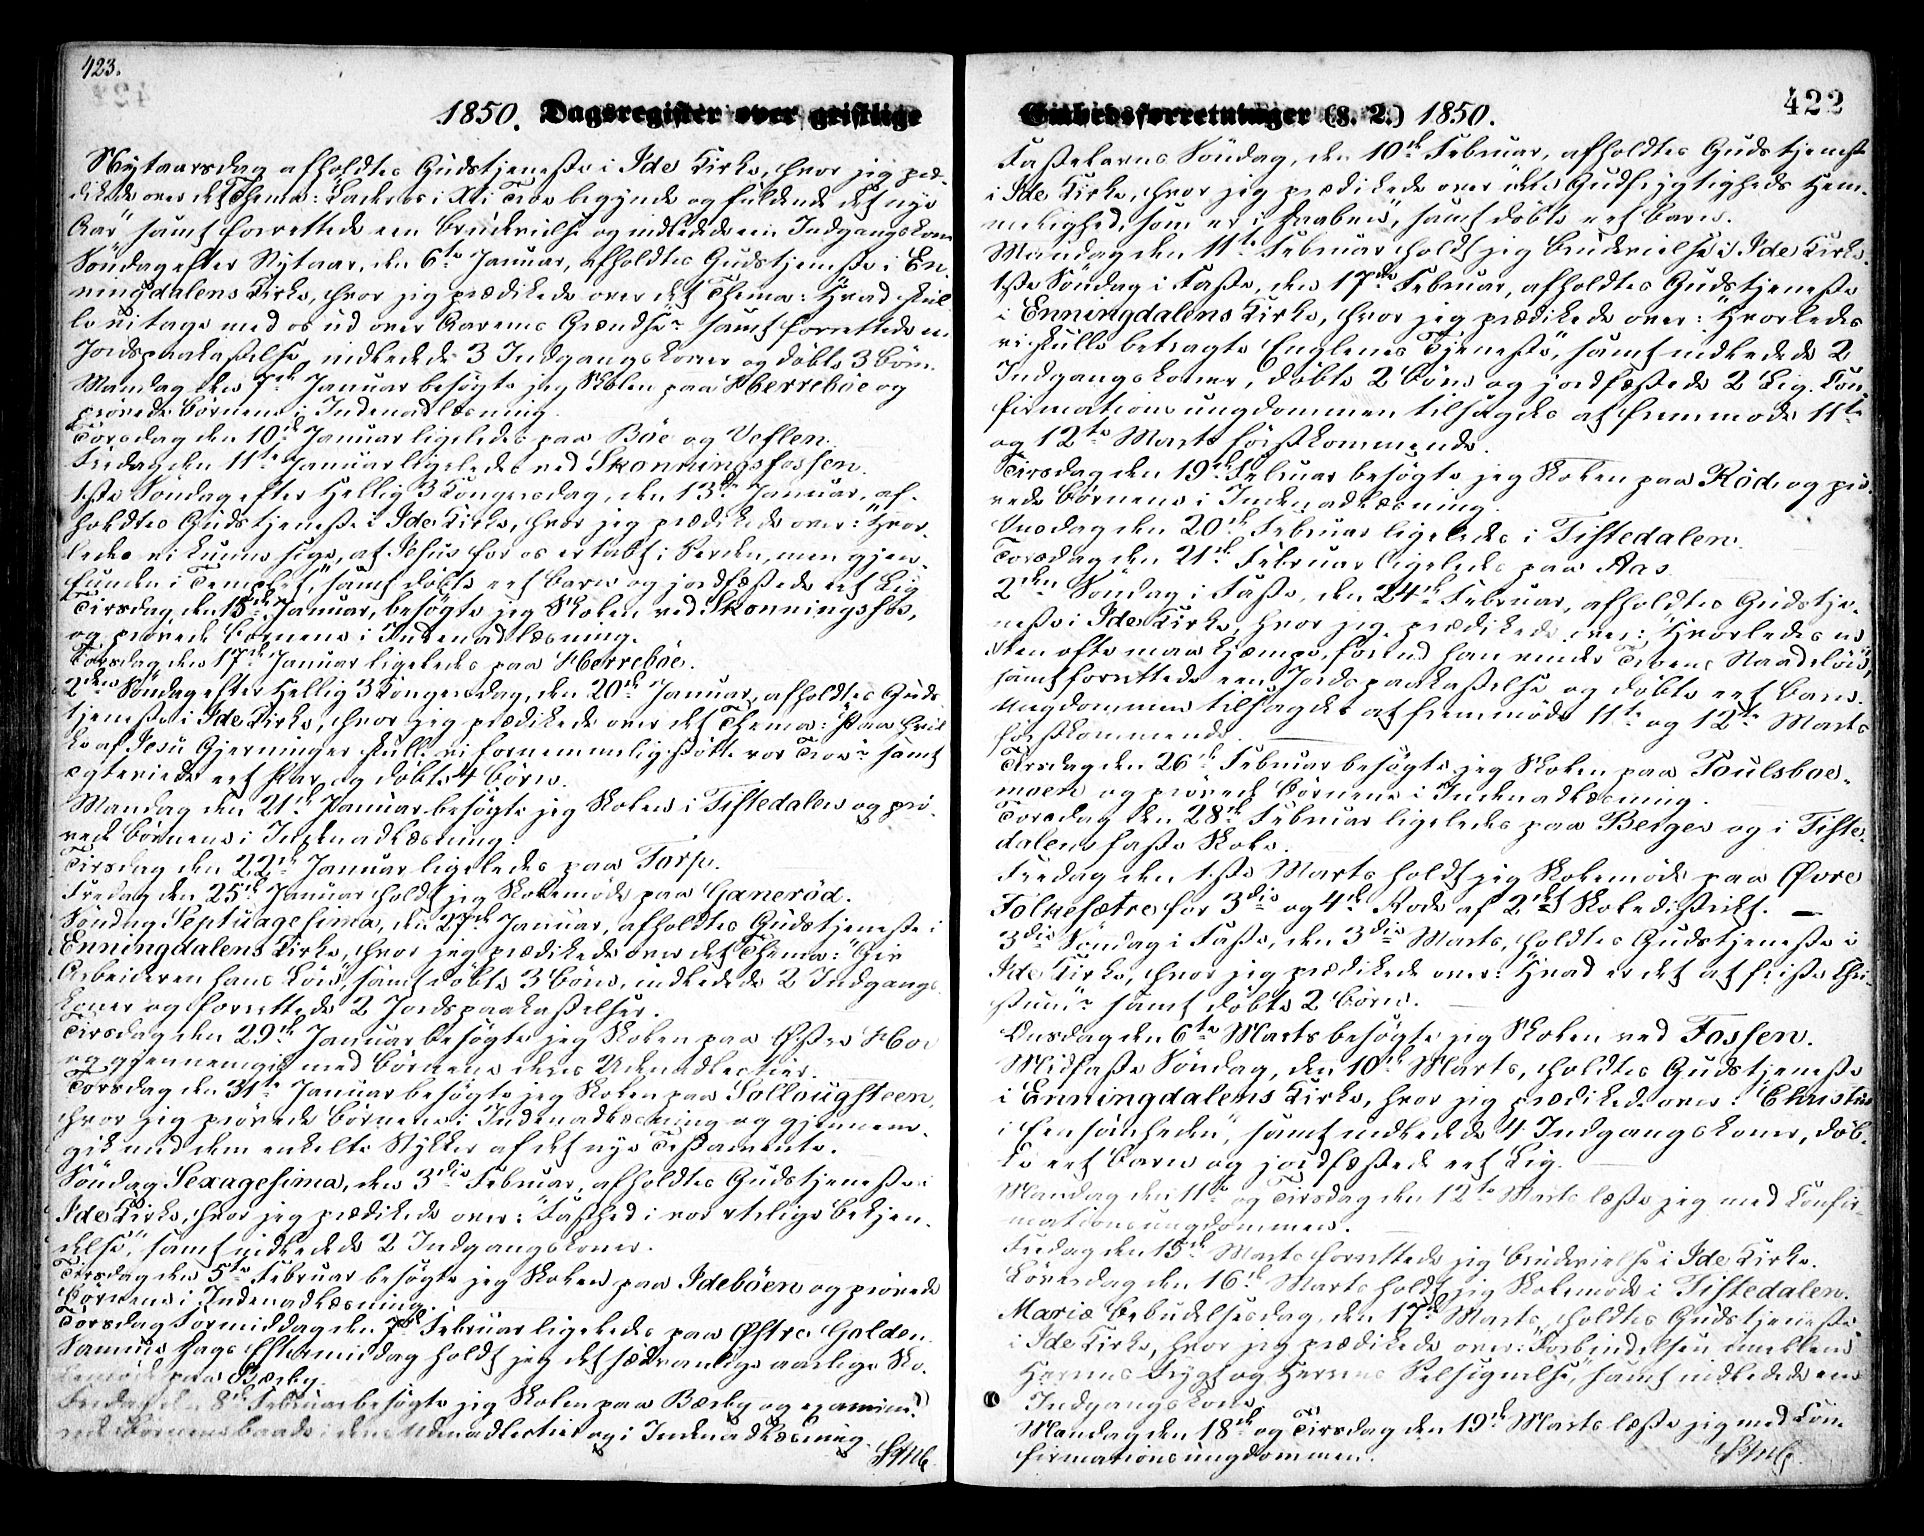 423.
1850. Dagsregister over geistlige
Nytaarsdag afholdtes Gudstjeneste i Ide Kirke, hvor jeg præ-
dikede over det Thema: "Lader os i Xti Troe begynde og fuldende det nye
Aar" samt forrettede een Brudevielse og indledede een Indgangskone
Søndag efter Nytaar, den 6te Januar, afholdtes Gudstjeneste i En-
ningdalens Kirke, hvor jeg prædikede over det Thema: "Hvad skul-
le vi tage med os ud over Aarens Grændse" samt forrettede en
Jordspaakastelse, indledede 3 Indgangskoner og døbte 3 Børn.
Mandag den 7de Januar besøgte jeg Skolen paa Herreböe og
prøvede Børnene i Indenadlæsning.
Torsdag den 10de Januar ligeledes paa Böe og Veflen.
Fredag den 11te Januar ligeledes ved Skonningsfossen.
1ste Søndag efter Hellig 3 Kongersdag, den 13de Januar, af-
holdtes Gudstjeneste i Ide Kirke, hvor jeg prædikede over: "Hvor-
ledes vi kunne sige, at Jesus for os er tabt i Verden, men gjen-
funden i Templet," samt døbte eet Barn og jordfæstede eet Lig
Tirsdag den 15de Januar, besøgte jeg Skolen ved Skonningsfos,
og prøvede Børnene i Indenadlæsning.
Torsdag den 17de Januar ligeledes paa Herreböe.
2den Søndag efter Hellig 3 Kongersdag, den 20de Januar, afholdtes Guds-
tjeneste i Ide Kirke, hvor jeg prædikede over det Thema: "Paa hvil-
ke af Jesu Gjerninger skulle vi fornemmelig støtte vor Troe" samt
ægteviede eet Par og døbte 4 Børn.
Mandag den 21de Januar besøgte jeg Skolen i Tistedalen og prø-
vede Børnene i Indenadlæsning.
Tirsdag den 22de Januar ligeledes paa Torp.
Fredag den 25de Januar holdt jeg Skolemøde paa Ganeröd.
Søndag Septuagesima, den 27de Januar, afholdtes Gudstjeneste i
Enningdalens Kirke, hvor jeg prædikede over det Thema: "Giv
Arbeideren hans Løn", samt døbte 3 Børn, indledede 2 Indgangs-
koner og forrettede 2 Jordspaakastelser.
Tirsdag den 29de Januar besøgte jeg Skolen paa Østre Hov
og gjennemgik med Børnene deres Udenadlectier.
Torsdag den 31te Januar besøgte jeg Skolen paa Sollougsteen,
hvor jeg prøvede Børnene i Indenadlæsning og gjennem-
gik med dem enkelte Stykker af det nye Testamente.
Søndag Sexagesima, den 3die Februar, afholdtes Gudstjeneste i
Ide Kirke, hvor jeg prædikede over: "Fasthed i vor christelige Bekjen-
delse," samt indledede 2 Indgangskoner.
Tirsdag den 5te Februar besøgte jeg Skolen paa Ideböen og prøvede
Børnene i Indenadlæsning.
Torsdag Formiddag den 7de Februar ligeledes paa Østre Golden.
Samme Dags Eftermiddag holdt jeg det sædvanlige aarlige Sko-
lemøde paa Bærby.
Fredag den 8de Februar besøgte jeg Skolen paa Bærby og examine-
rede Børnene baade i deres Udenadlectier og i Indenadlæsning.
422
Embedsforretninger (s. 2.) 1850.
Fastelavns Søndag, den 10de Februar, afholdtes Gudstjeneste
i Ide Kirke, hvor jeg prædikede over "Gudfrygtigheds Hem-
melighed, som er i Daaben", samt døbte eet Barn.
Mandag den 11te Februar holdt jeg Brudevielse i Ide Kirke.
1ste Søndag i Faste, den 17de Februar, afholdtes Gudstjeneste
i Enningdalens Kirke, hvor jeg prædikede over: "Hvorledes
vi skulle betragte Englenes Tjeneste", samt indledede 2
Indgangskoner, døbte 2 Børn og jordfæstede 2 Lig. Con-
firmationsungdommen tilsagdes at fremmøde 11te
og 12te Marts førstkommende.
Tirsdag den 19de Februar besøgte jeg Skolen paa Röd og prø-
vede Børnene i Indenadlæsning.
Onsdag den 20de Februar ligeledes i Tistedalen.
Torsdag den 21de Februar ligeledes paa Aas.
2den Søndag i Faste, den 24de Februar, afholdtes Gudstje-
neste i Ide Kirke, hvor jeg prædikede over: "Hvorledes
ofte maa kjæmpe, førend han vinder Troens Naadeløn",
samt forrettede een Jordspaakastelse og døbte eet Barn.
Ungdommen tilsagdes at fremmøde 11te og 12te Marts
førstkommende.
Tirsdag den 26de Februar besøgte jeg Skolen paa Poulsboe-
moen og prøvede Børnene i Indenadlæsning.
Torsdag den 28de Februar ligeledes paa Berger og i Tiste-
dalens faste Skole.
Fredag den 1ste Marts holdt jeg Skolemøde paa Øvre
Folkesætre for 3die og 4de Rode af 2det Skoledistrikt. —
3die Søndag i Faste, den 3die Marts, holdtes Gudstjeneste i
Ide Kirke, hvor jeg prædikede over: "Hvad er det at friste Chri-
stum" samt døbte 2 Børn.
Onsdag den 6te Marts besøgte jeg Skolen ved Fossen.
Midfaste Søndag, den 10de Marts, holdtes Gudstjeneste
i Enningdalens Kirke, hvor jeg prædikede over: "Christus
i Eensomheden", samt indledede 4 Indgangskoner, døb-
te eet Barn og jordfæstede eet Lig.
Mandag den 11te og Tirsdag den 12te Marts læste jeg med Confir-
mationsungdommen.
Fredag den 15de Marts forrettede jeg Brudevielse i Ide Kirke.
Løverdag den 16de Marts holdt jeg Skolemøde i Tistedalen.
Mariæ Bebudelsesdag, den 17de Marts, holdtes Gudstjeneste
i Ide Kirke, hvor jeg prædikede over: "Forbindelsen imellem
Herrens Frygt og Herrens Velsignelse," samt indledede een
Indgangskone.
Mandag den 18de og Tirsdag den 19de Marts læste jeg med Con-
firmationsungdommen.